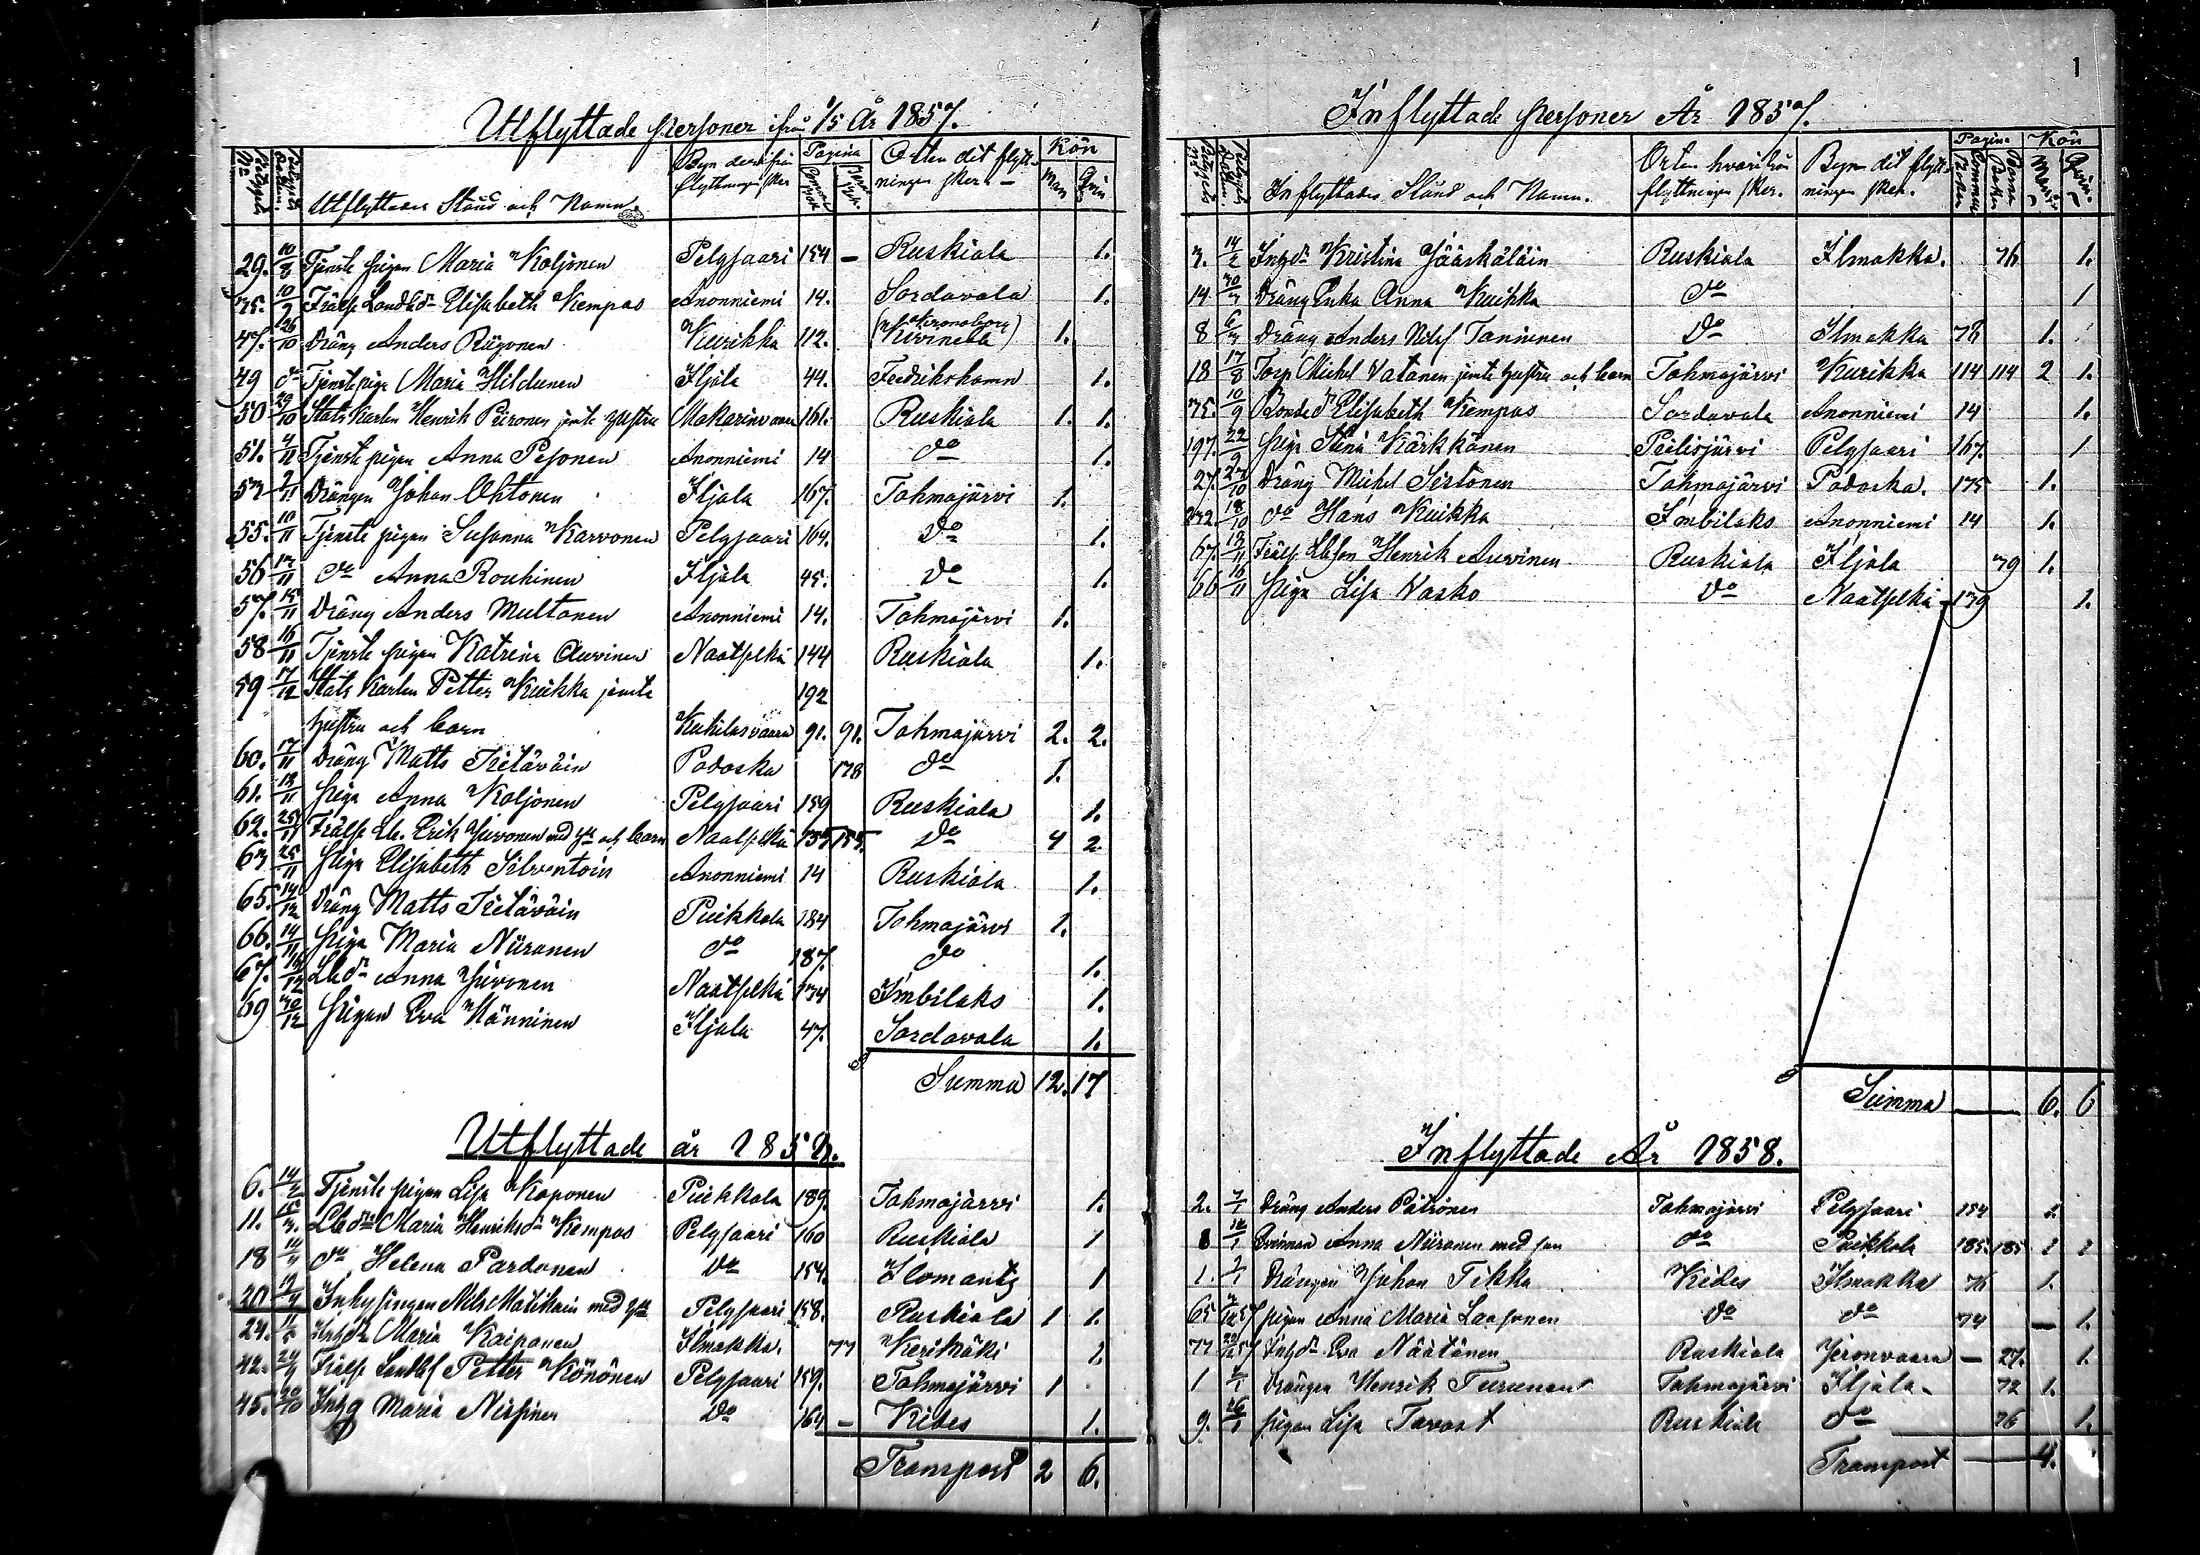 Utflyttade Personer ifrån 1/5 År 1857.
Utflyttades Stånd och Namn. Byn derifrån flyttningen sker Pagina Orten dit flyttningen sker Kön Man Qvin
29. 10/8 Tjenste pigan Maria Koljonen Pelgjaari 154 — Ruskiala 1.
35. 10/9 Frälse Landbd:r Elisabeth Kempas Anonniemi 14. Sordavala 1.
47. 26/10 Dräng Anders Kurikka 112. (Kronoborg) (Kivineba) 1.
49 do Tjenstepiga Maria Hildunen Iljala 44. Fredrikshamn 1.
50 29/10 Stats Karlen Henrik Piironen jemte hustru Makarinvaara 161. Ruskiala 1. 1.
51. 4/11 Tjenste pigan Anna Pesonen Anonniemi 14 do 1.
53 9/11 Drängen Johan Ohtonen Iljala 167. Tohmajärvi 1.
55. 10/11 Tjenste pigan Susanna Karvonen Pelgjaari 164. do 1.
56 12/11 do Anna Rouhinen Iljala 45. do 1.
57. 15/11 Dräng Anders Multonen Anonniemi 14. Tohmajärvi 1.
58 16/11 Tjenste pigan Katrina Auvinen Naatselkä 144 Ruskiala 1.
59 17/12 Stats Karlen Petter Kuikka jemte 192
hustru och barn Kukilasvaara 91. 91. Tohmajärvi 2. 2.
60. 17/11 Dräng Matts Tietäväin Podoska 178 do 1.
61. 18/11 Piga Anna Koljonen Pelgjaari 159 Ruskiala 1.
62. 25/11 Frälse Lb. Erik Hirvonen med hu och barn Naatselkä 155 155. do 4 2
63 25/11 Piga Elisabeth Silventoin Anonniemi 14 Ruskiala 1.
65. 14/12 Dräng Matts Tietäväin Puikkola 184 Tohmajärvi 1.
66. 14/11 Piga Maria Niiranen do 187. do 1.
67. 15/12 Lbd:r Anna Hirvonen Naatselkä 134 Imbilaks 1.
69 30/12 Pigan Eva Hänninen Iljala 47. Sordavala 1.
Summa 12. 17
Utflyttade år 1858.
6. 14/2 Tjenste pigan Lisa Kaponen Puikkola 189. Tohmajärvi 1.
11. Lbd:r Maria Henriksd:r Kempas Pelgjaari 160 Ruskiala 1
18 do Helena Pardanen do 154. Ilomants 1
20 Inhysingen Nils Matikain med hu Pelgjaari 158. Ruskiala 1 1.
24. Maria Kaipanen Ilmakka. 77 Kerimäki 1
42. 24/9 Frälse Landb:s Petter Könönen Pelgjaari 159. Tohmajärvi 1
45. 20/10 Inhg Maria do 164 — Kides 1.
Transport 2 6.
1
Inflyttade Personer År 1857.
Inflyttades Stånd och Namn. Orten hvarifrån flyttningen sker. Byn dit flyttningen sker. Pagina Kön
3. 14/2 Inhd:r Kristina Jääskäläin Ruskiala Ilmakka. 76 1.
14 30/3 Dräng Enka Anna Kuikka do 1
8 6/3 Dräng Anders Nilss Tanninen do Ilmakka 78 1.
18 17/8 Torp Michel Vatanen jemte hustru och barn Tohmajärvi Kurikka 114 114 2 1.
35. 10/9 Bonde d:r Elisabeth Kempas Sordavala Anonniemi 14 1.
197. 22/9 Piga Stina Kärkkänen Pielisjärvi Pelgjaari 167. 1
27. 27/10 Dräng Michel Sistonen Tohmajärvi Podoska. 175 1.
18/10 do Hans Kuikka Imbilaks Anonniemi 14 1.
67. 13/11 Frälse Lbson Henrik Auvinen Ruskiala Iljala 79 1.
66 16/11 Piga Lisa Vasko do Naatselkä 139 1.
Summa — 6. 6
Inflyttade År 1858.
2. 7/1 Dräng Anders Piironen Tohmajärvi Pelgjaari 154 1.
8 Qvinnan Anna Niiranen med son do Puikkola 185. 185 1 1
1. Drängen Johan Tikka Kides Ilmakka 76 1.
65 Pigan Anna Maria Laasonen do do 74 — 1.
77 Inhd:r Eva Näätänen Ruskiala Jeronvaara — 27. 1.
1 Drängen Henrik Turunen Tohmajärvi Iljala 72 1.
9. Pigan Lisa Tavast Ruskiala do 76 1.
Transport — 4.